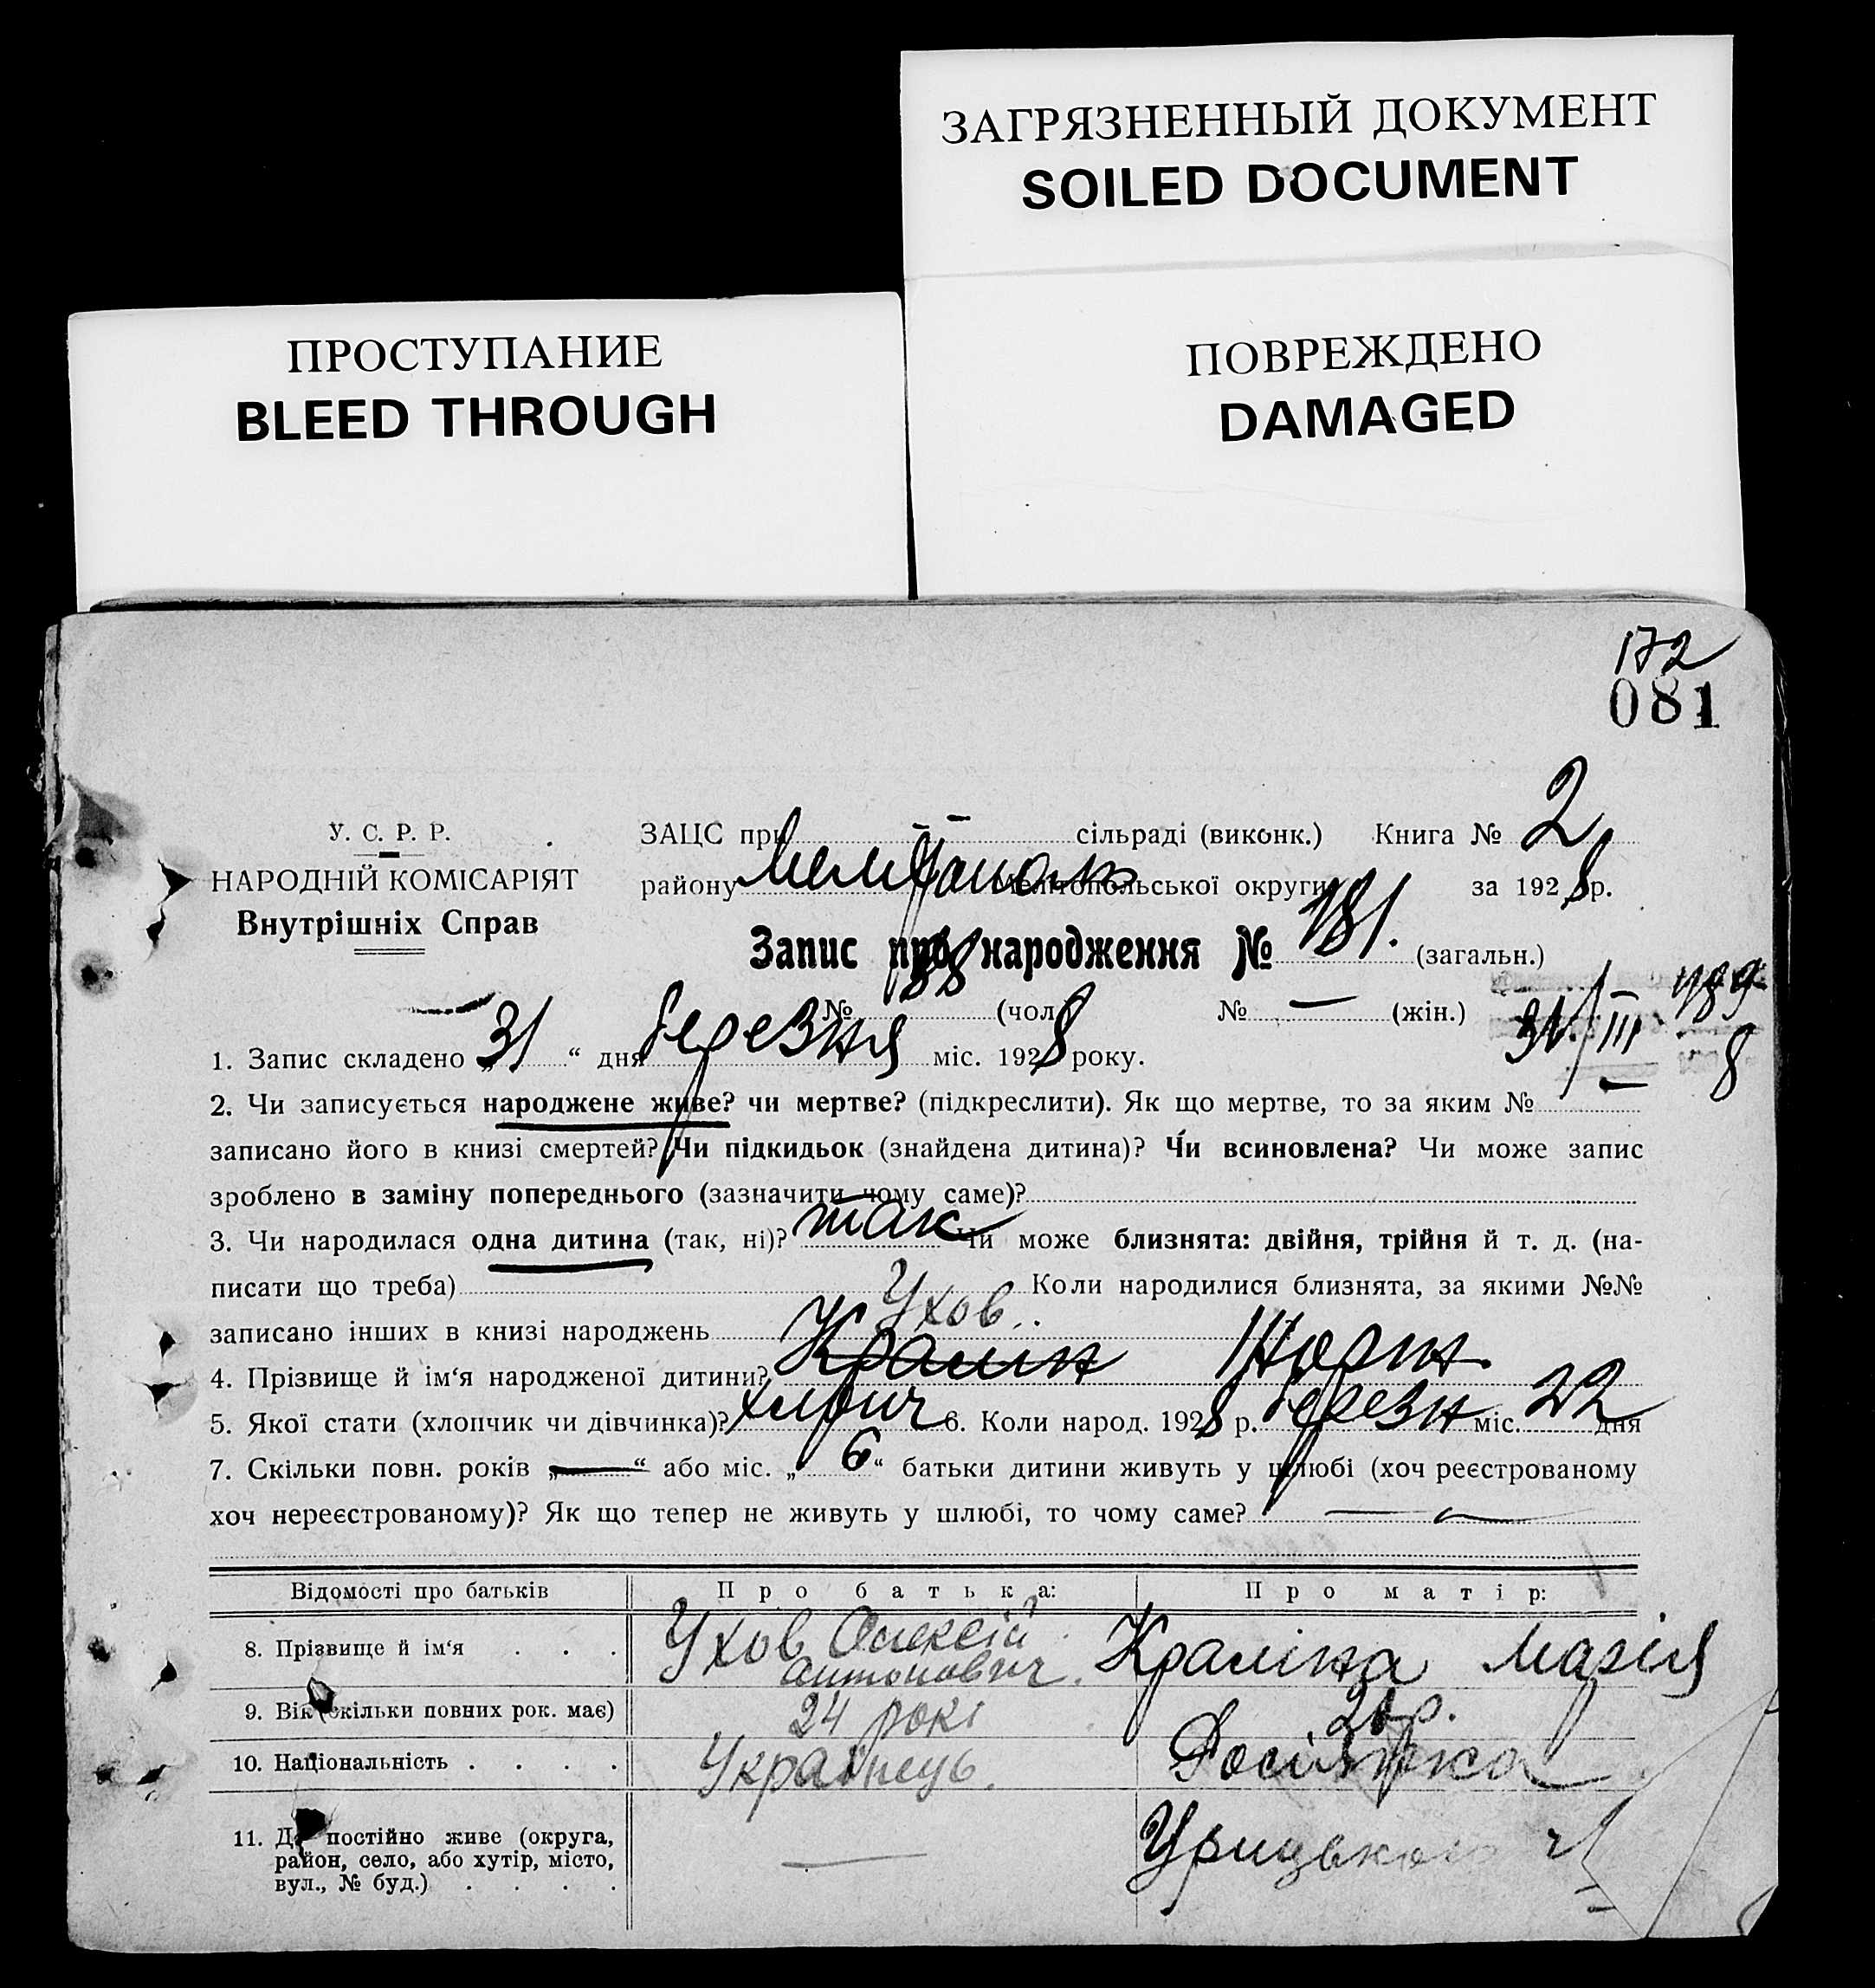 ЗАГРЯЗНЕННЫЙ ДОКУМЕНТ
SOILED DOCUMENT
ПРОСТУПАНИЕ
BLEED THROUGH
ПОВРЕЖДЕНО
DAMAGED
172
081
У. С. Р. Р.
НАРОДНІЙ КОМІСАРІЯТ
Внутрішніх Справ
ЗАЦС при — — сільраді (виконк.) Книга № 2
району Мелітополь Мелітопольської округи за 1928 р.
Запис про народження № 181. (загальн.)
№ 88 (чол.) № — (жін.)
31/III 8
1. Запис складено „31“ дня березня міс. 1928 року.
2. Чи записується народжене живе? чи мертве? (підкреслити). Як що мертве, то за яким № —
записано його в книзі смертей? Чи підкидьок (знайдена дитина)? Чи всиновлена? Чи може запис
зроблено в заміну попереднього (зазначити чому саме)?
3. Чи народилася одна дитина (так, ні)? так Чи може близнята: двійня, трійня й т. д. (на-
писати що треба) Коли народилися близнята, за якими №№
записано інших в книзі народжень
Ухов
4. Прізвище й ім‘я народженої дитини?
5. Якої стати (хлопчик чи дівчинка)? хлопч 6. Коли народ. 1928 р. березн міс. 22 дня
7. Скільки повн. років „—“ або міс. „6“ батьки дитини живуть у шлюбі (хоч реєстрованому
хоч нереєстрованому)? Як що тепер не живуть у шлюбі, то чому саме? —
Відомості про батьків Про батька: Про матір:
8. Прізвище й ім‘я . . . Ухов Олексій Антонович. Краліна Марія
9. Вік (скільки повних рок. має) 24 рокі р.
10. Національність . . . . Українець. Росіянка
11. Де постійно живе (округа,
район, село, або хутір, місто,
вул., № буд.) . . . . — Урицького